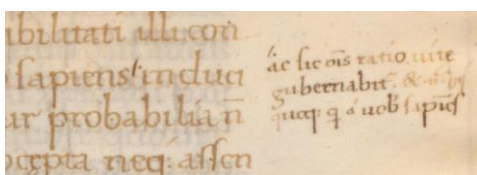 ibilitati illi con
sapiens induci
ur probabilia n̄
ocępta neq; assen
ac sic oīs ratio uite
gubernabit̄
a uob sapiēs